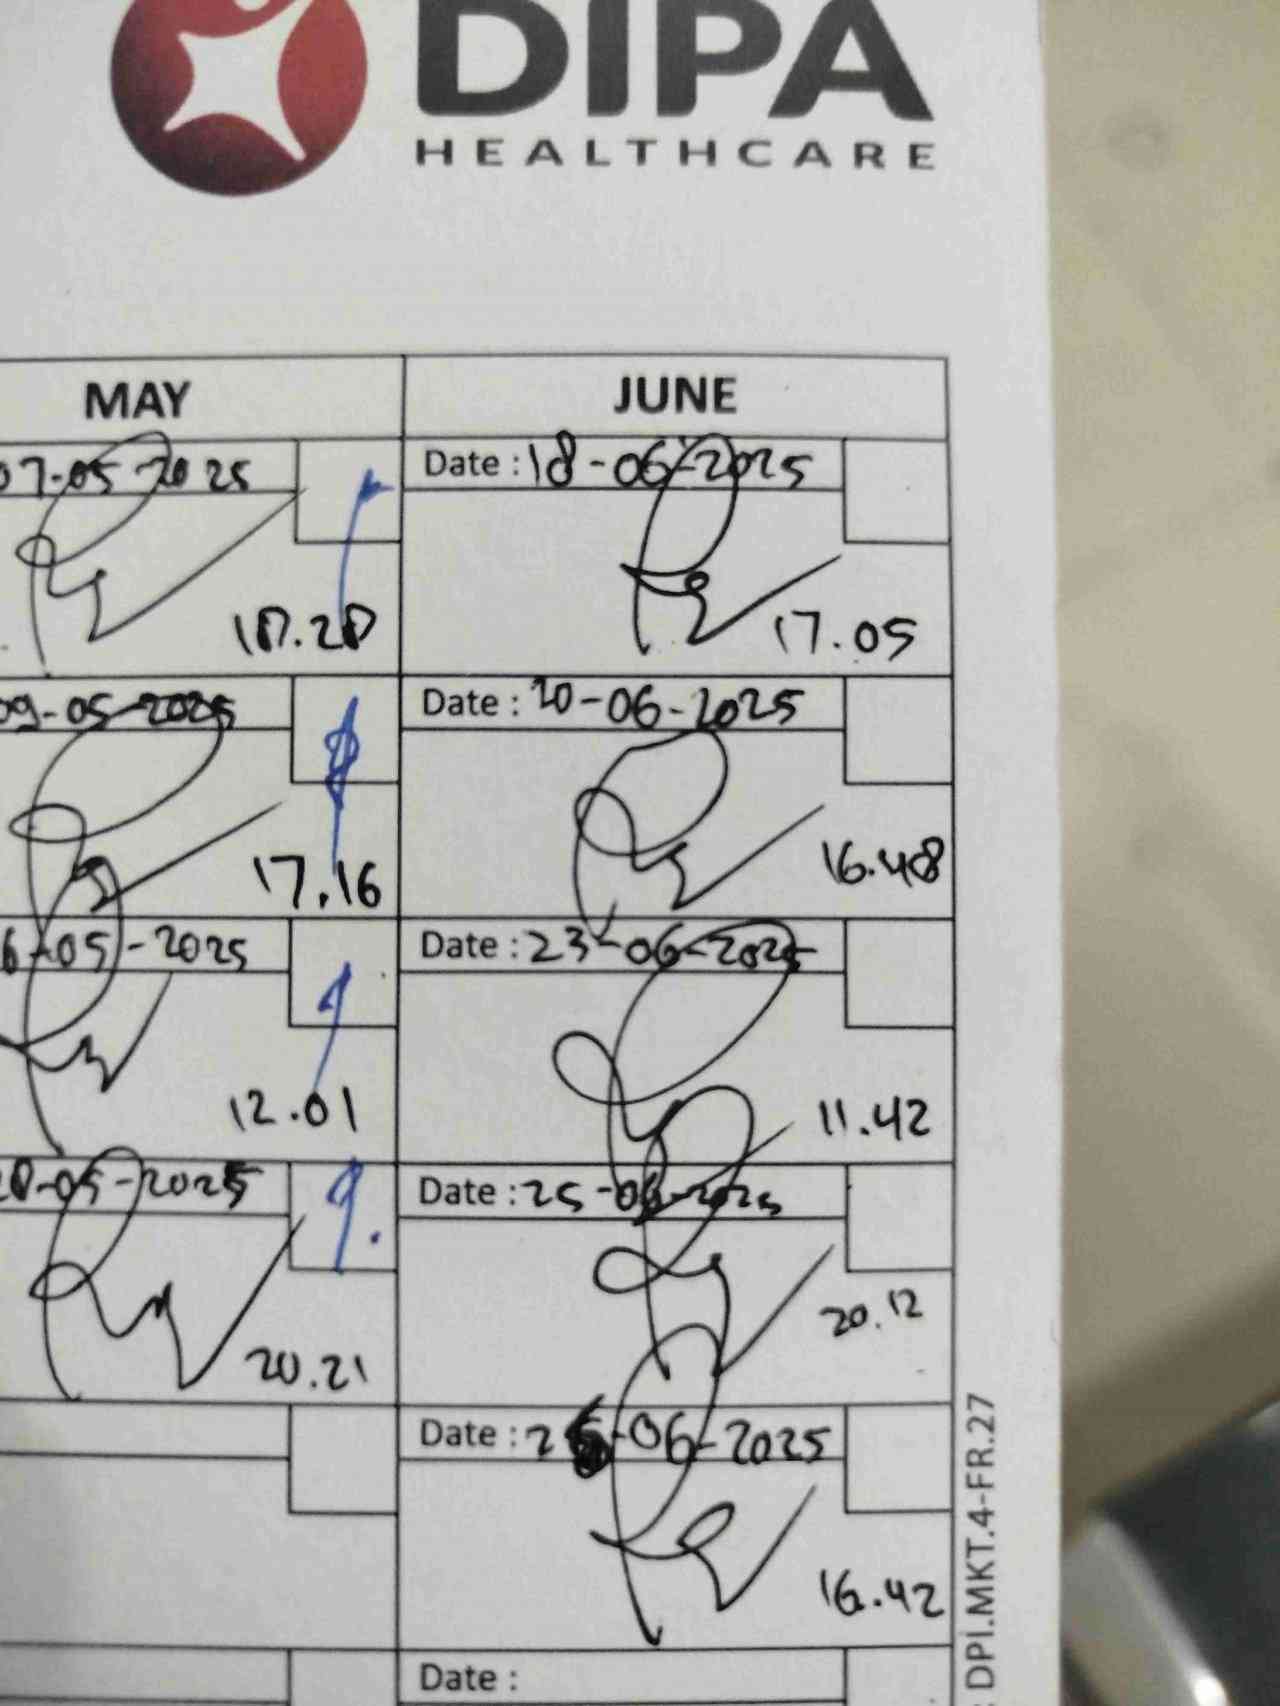 DIPA
HEALTHCARE
MAY
07-05-2025
18.28
09-05-2025
17.16
6-05-2025
12.01
28-05-2025
20.21
JUNE
Date : 18-06-2025
17.05
Date : 20-06-2025
16.48
Date : 23-06-2025
11.42
Date : 25-06-2025
20.12
Date : -06-2025
16.42
Date :
: DPI.MKT.4-FR.27